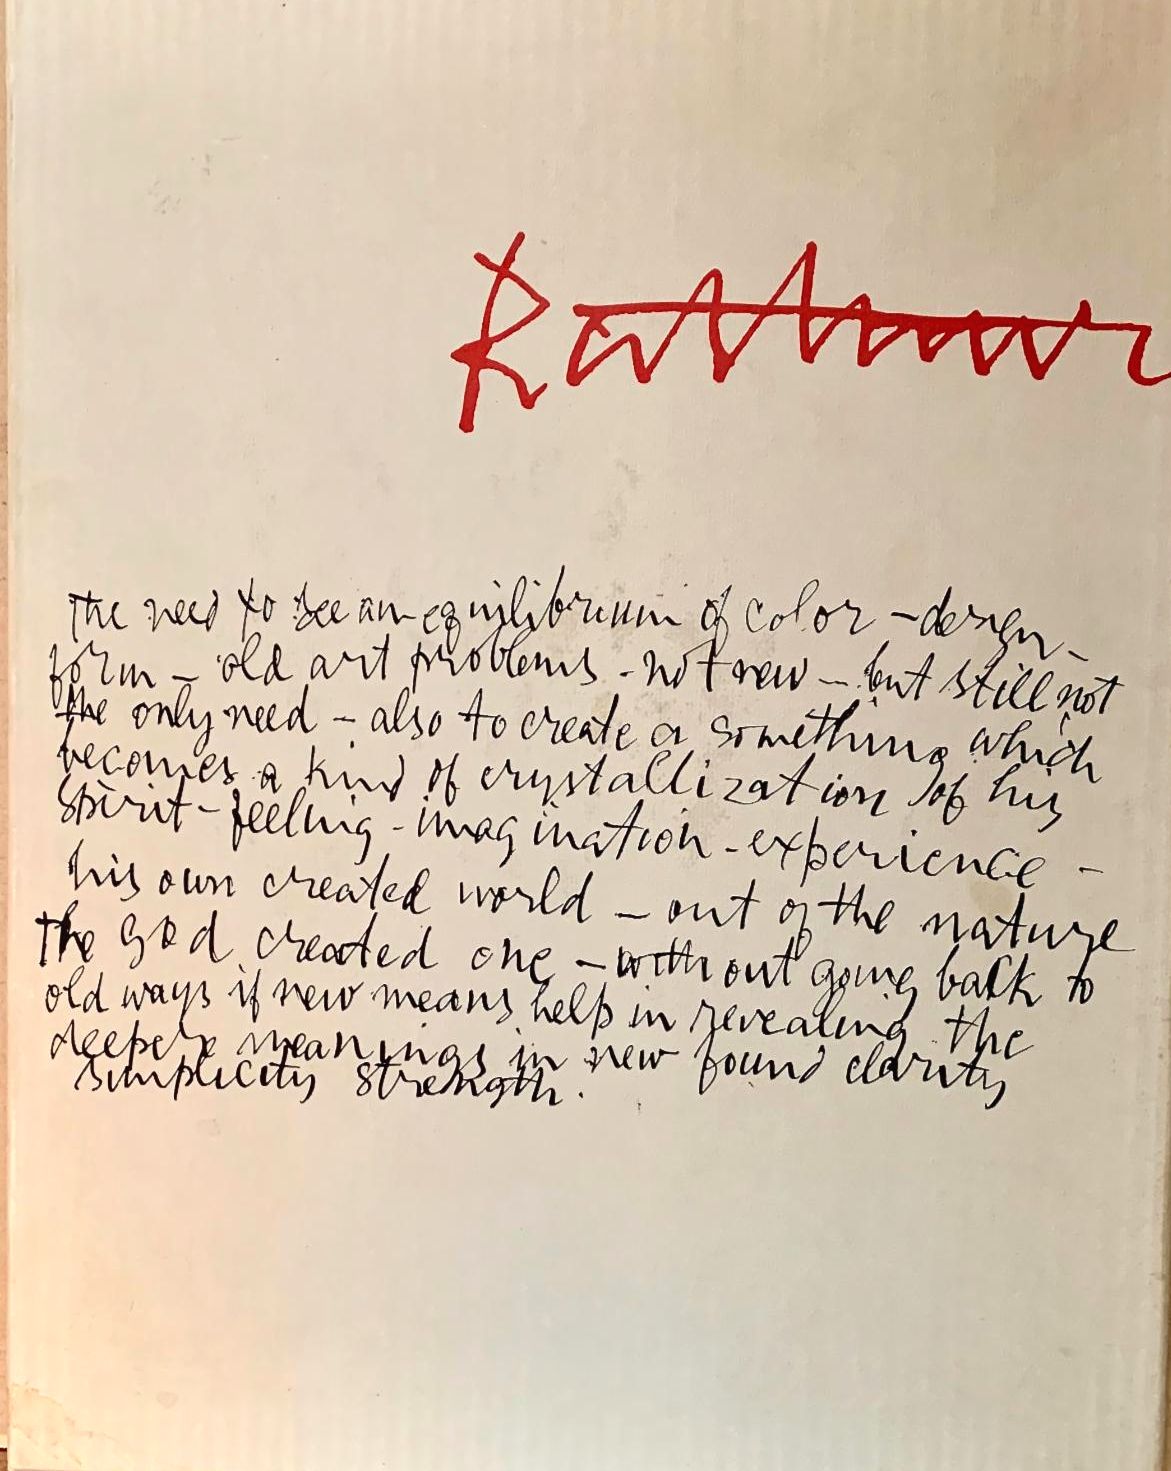 Rattner
the need to see an equilibrium of color - design -
form - old art problems - not new - but still not
the only need - also to create a something which
becomes a kind of crystallization of his
spirit - feeling - imagination - experience -
his own created world - out of the nature
the God created one - without going back to
old ways if new means help in revealing the
deeper meanings in new found clarity
simplicity strength.